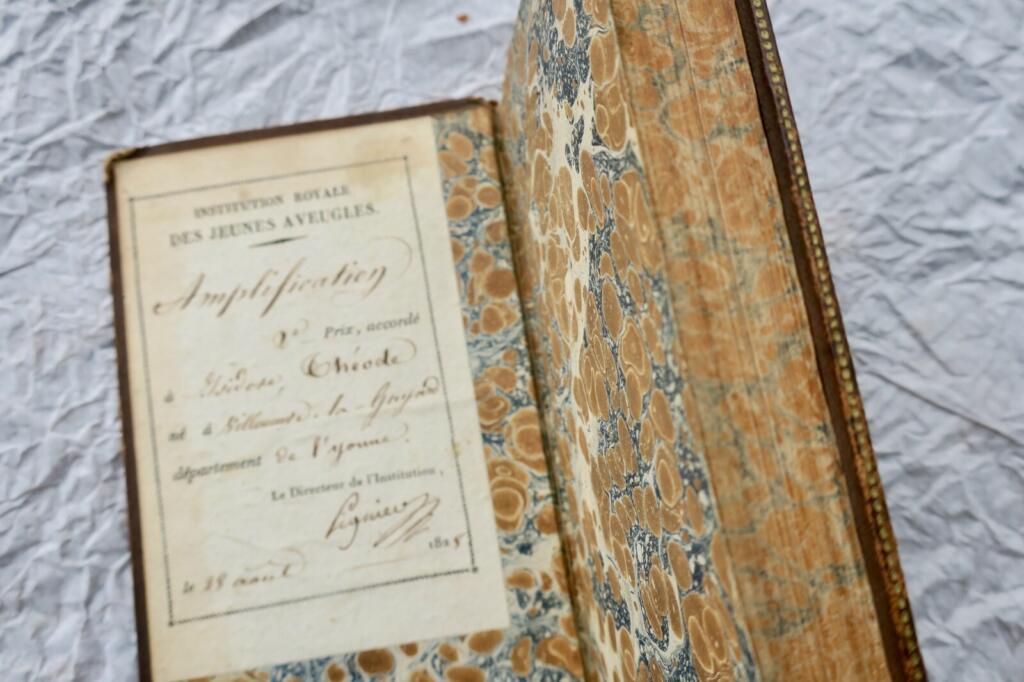 INSTITUTION ROYALE
DES JEUNES AVEUGLES.
Amplification
2e Prix, accordé
à Isidore, Théode
né à Villeneuve-la-Guyard
département de l'yonne.
Le Directeur de l'Institution,
Pignier
1828
le 18 août